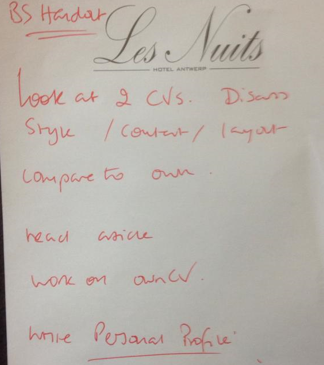 BS Handout
Les Nuits
HOTEL ANTWERP
Look at 2 CVs. Discuss
Style / Content / layout
Compare to own.
Read article
Work on own CV.
Write Personal Profile